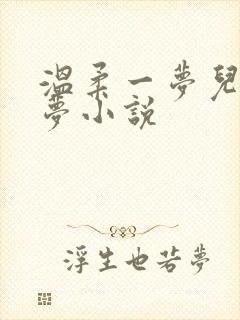 溫柔一夢兒
夢小說
浮生也若夢